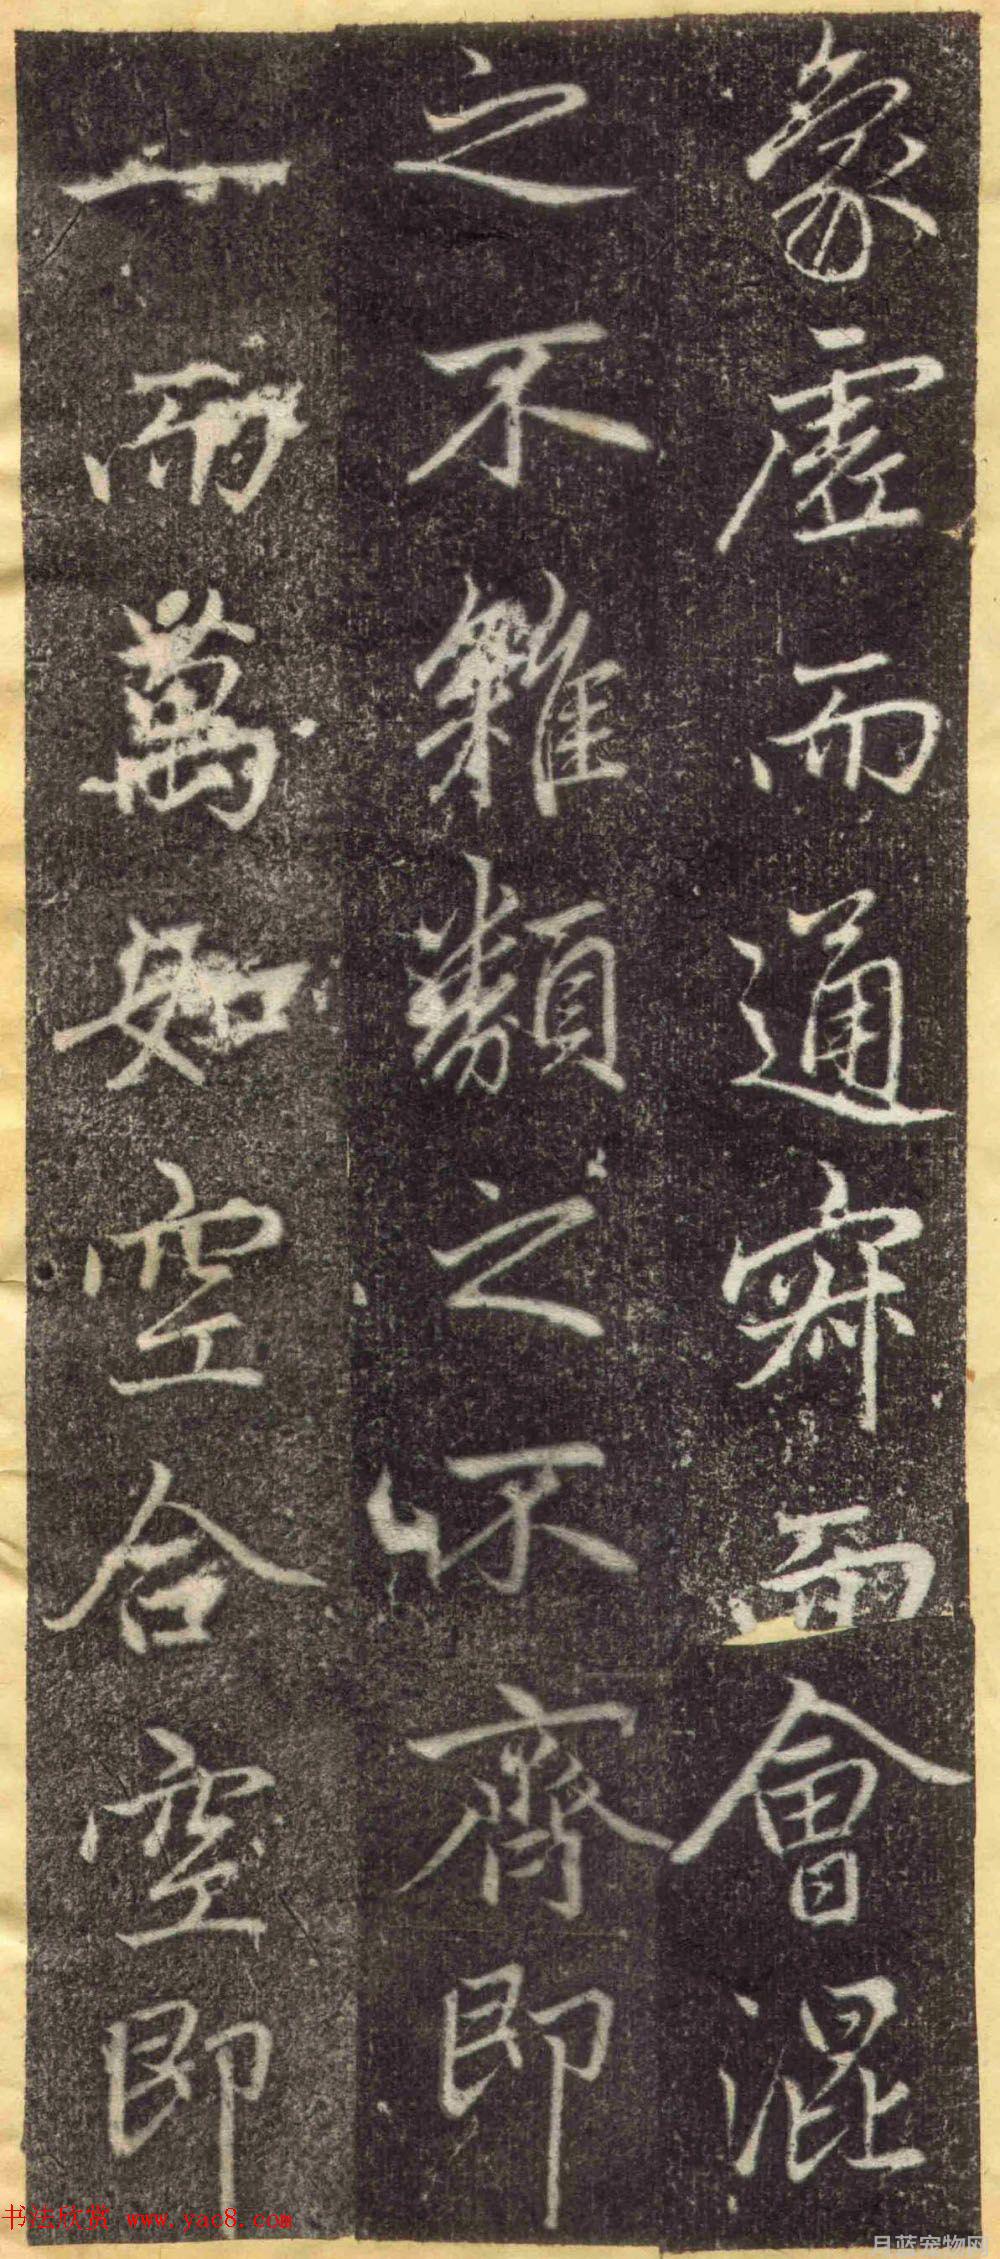 象虛而通寂而會混
之不雜類之不齊即
一而萬如空合空即
书法欣赏 www.yac8.com
月蓝宠物网